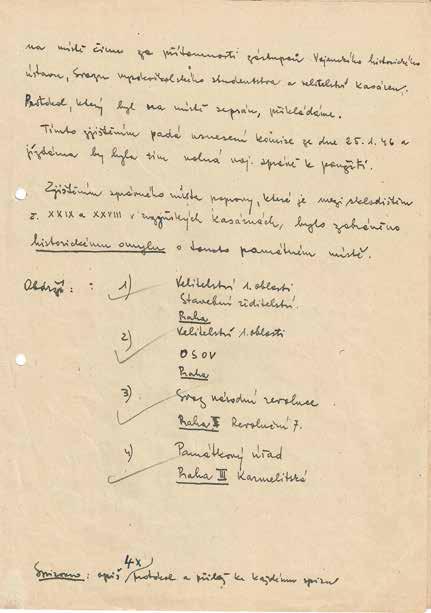 na místě činu za přítomnosti zástupců Vojenského historického
ústavu, Svazu vysokoškolského studentstva a velitelství kasáren.
Protokol, který byl na místě sepsán, přikládáme.
Tímto zjištěním padá usnesení komise ze dne 25.1.46 a
jízdárna by byla tím volná voj. správě k použití.
Zjištěním správného místa popravy, které je mezi skladištěm
č. XXIX a XXVIII v ruzyňských kasárnách, bylo zabráněno
historickému omylu o tomto památném místě.
Obdrží:
1) Velitelství 1. oblasti
Stavební ředitelství.
Praha
2) Velitelství 1. oblasti
OSOV
Praha
3) Svaz národní revoluce
Praha II Revoluční 7.
4) Památkový úřad
Praha III Karmelitská
4x
opiš protokol a přilož ke každému spisu